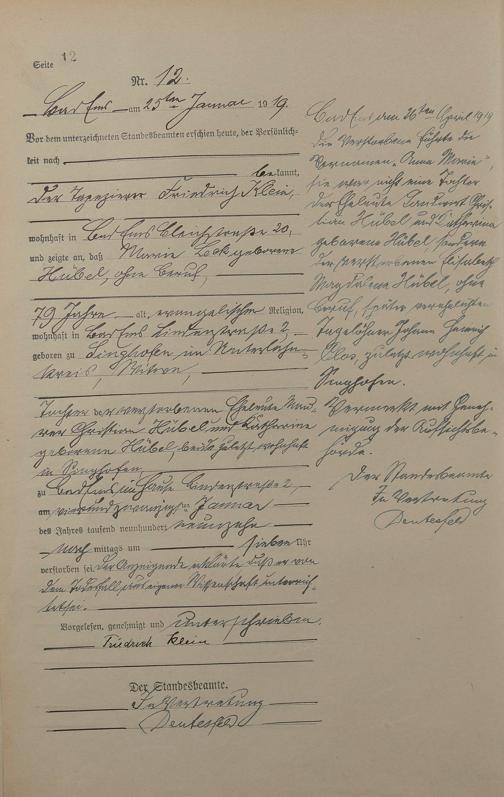 Seite 12
Nr. 12.
Bad Ems am 25ten Januar 1919.
Vor dem unterzeichneten Standesbeamten erschien heute, der Persönlich-
keit nach
bekannt,
der Tapezierer Friedrich Klein,
wohnhaft in Bad Ems Bleichstraße 20,
und zeigte an, daß Marie geborene
Hübel, ohne Beruf,
79 Jahre alt, evangelischer Religion,
wohnhaft in Bad Ems Lindenstraße 2
geboren zu Singhofen im Unterlahn-
kreis, Witwe,
Tochter der verstorbenen Eheleute Mau-
rer Christian Hübel und Katharine
geborene Hübel, beide zuletzt wohnhaft
in Singhofen,
zu Bad Ems im Hause Lindenstraße 2,
am vierundzwanzigsten Januar
des Jahres tausend neunhundert neunzehn
nach mittags um sieben Uhr
verstorben sei. Der Anzeigende erklärte daß er von
dem Todesfall aus eigener Wissenschaft unterrich-
tet sei.
Vorgelesen, genehmigt und unterschrieben
Friedrich Klein
Der Standesbeamte.
In Vertretung
Bad Ems am 26ten April 1919
Die Verstorbene führte die
Vornamen „Anna Maria",
sie war nicht eine Tochter
der Eheleute Landwirt Chris-
tian Hübel und Katharina
geborene Hübel sondern
der verstorbenen Elisabeth
Magdalena Hübel, ohne
Beruf, später verehelichten
Tagelöhner Johann Heinrich
zuletzt wohnhaft in
Singhofen.
Vermerkt mit Geneh-
migung der Aufsichtsbe-
hörde.
Der Standesbeamte
In Vertretung